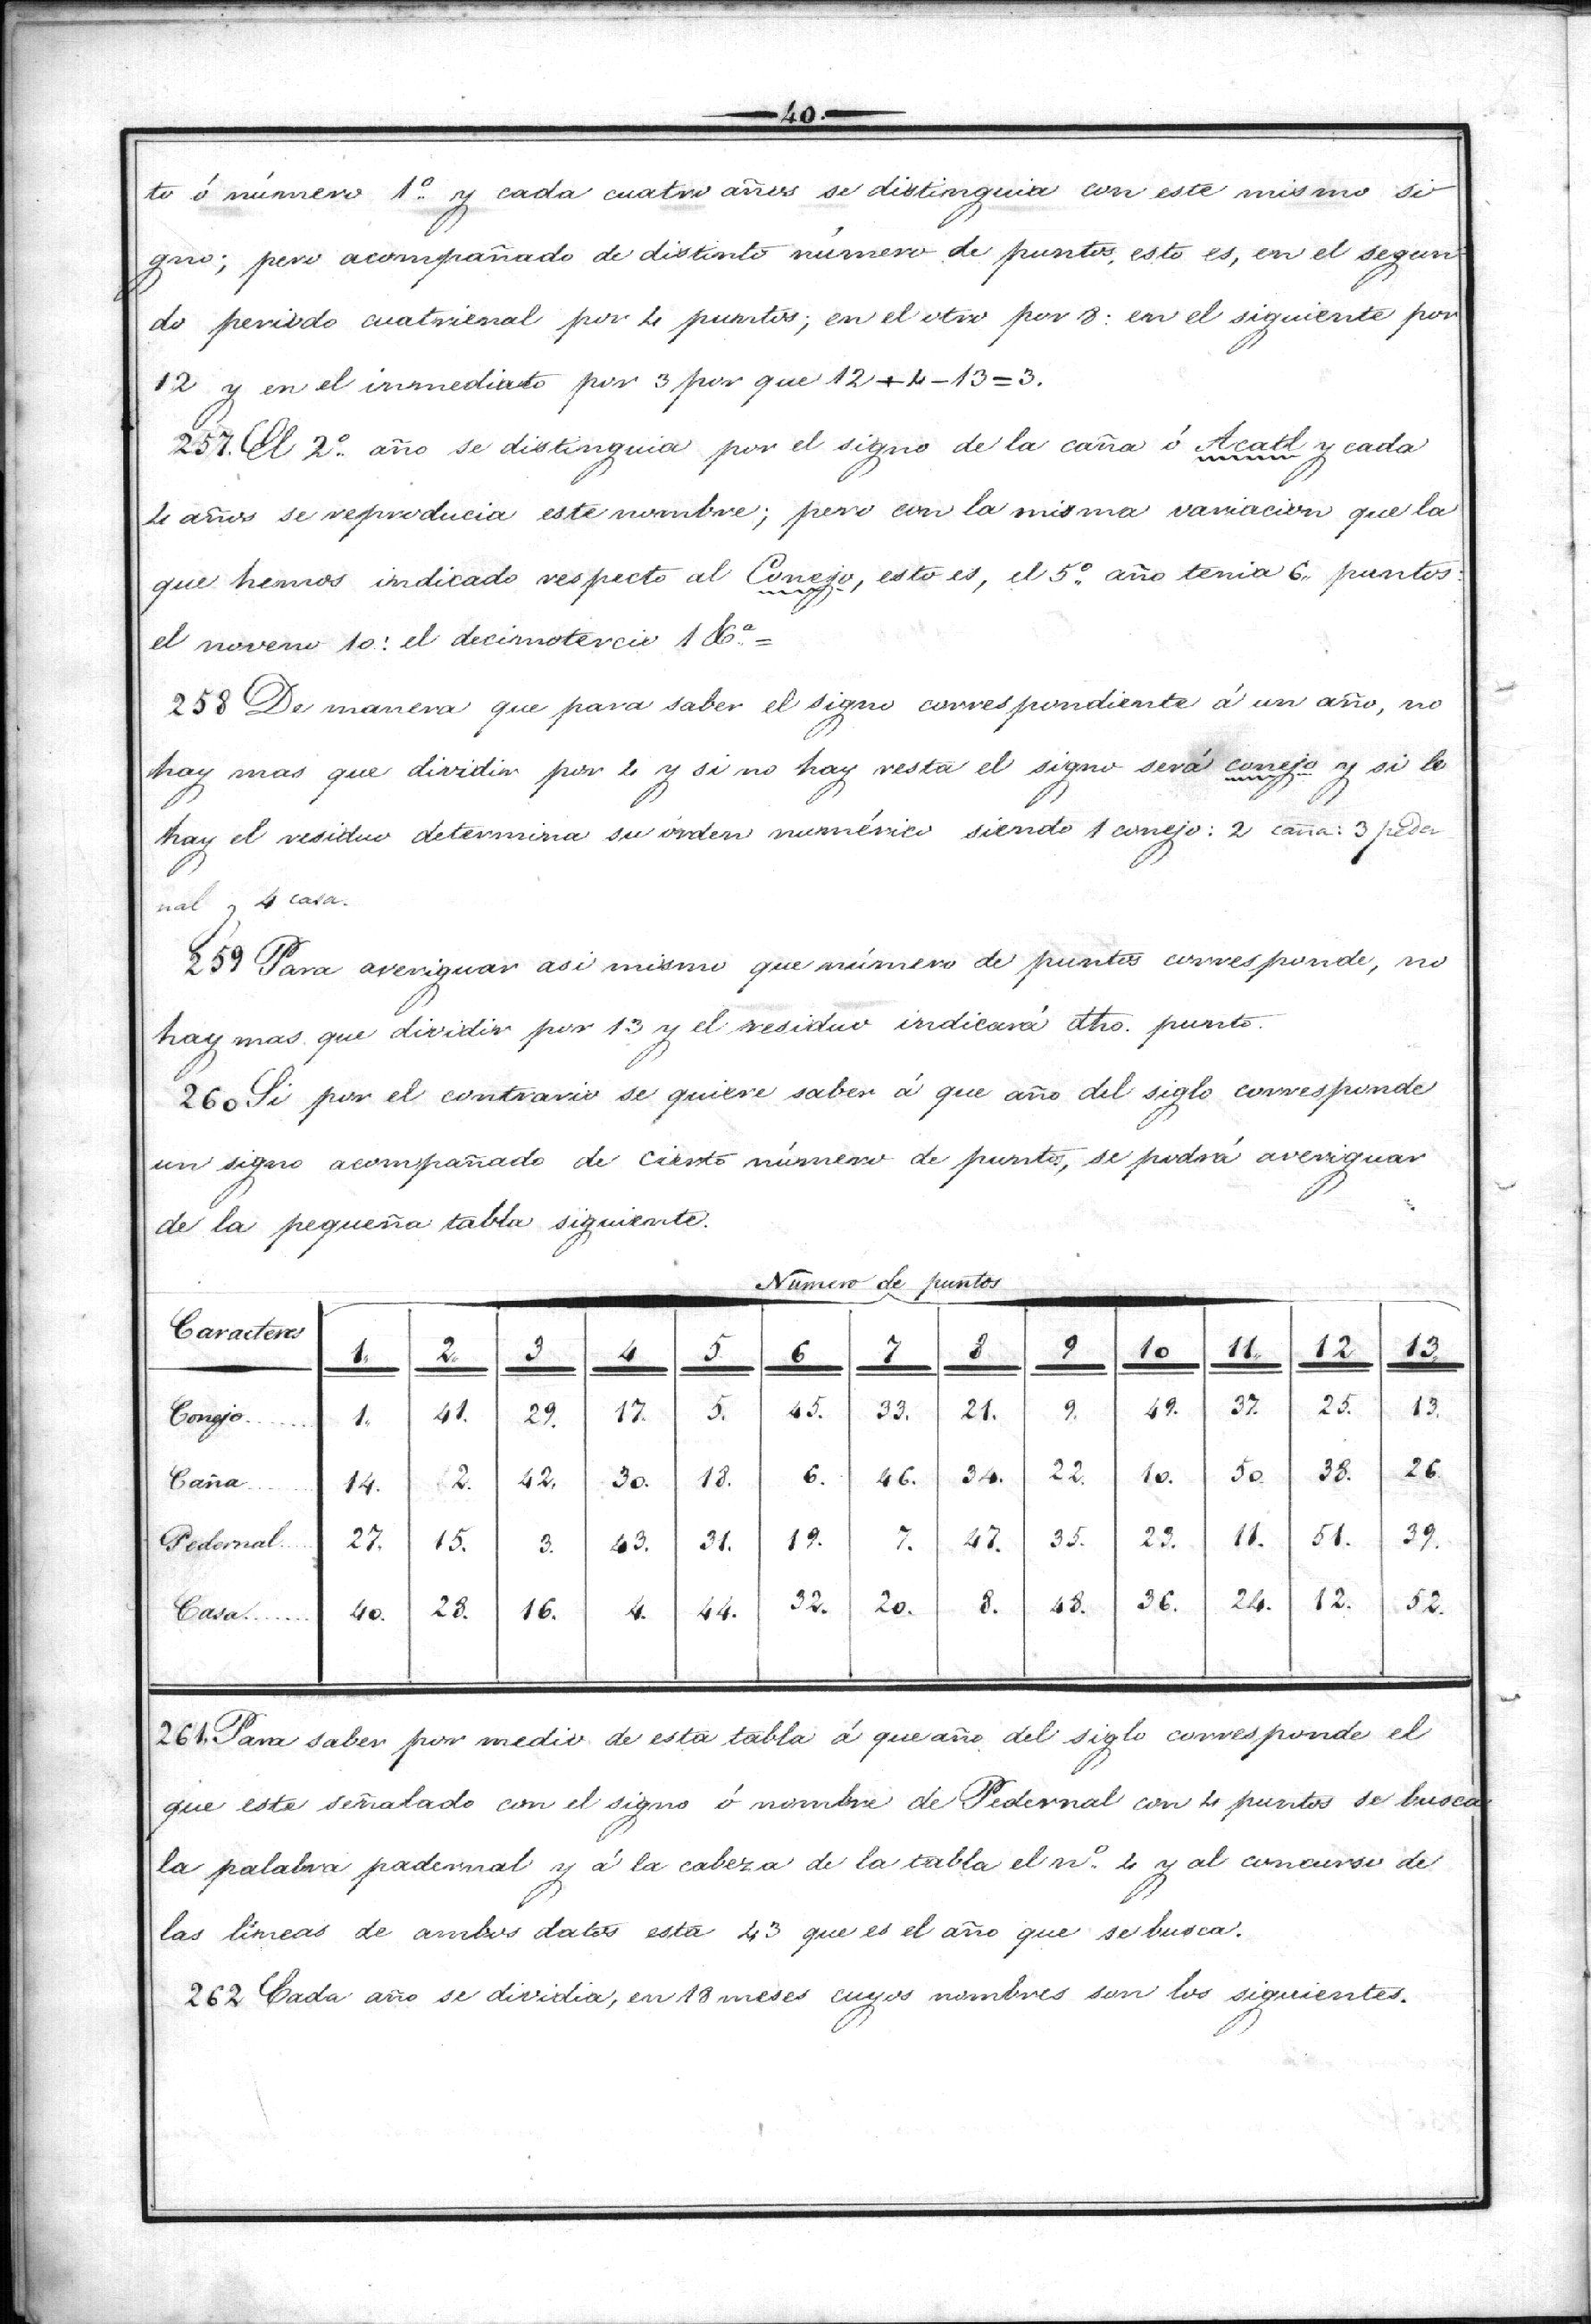 40.
to ó número 1º y cada cuatro años se distinguia con este mismo si
gno; pero acompañado de distinto número de puntos, esto es, en el segun
do periodo cuatrienal por 4 puntos; en el otro por 8: en el siguiente por
12 y en el inmediato por 3 por que 12+4-13=3.
257. El 2º año se distinguia por el signo de la caña ó Acatl y cada
4 años se reproducia este nombre; pero con la misma variacion que la
que hemos indicado respecto al Conejo, esto es, el 5º año tenia 6. puntos:
el noveno 10: el decimotercio 1 &ª=
258 De manera que para saber el signo correspondiente á un año, no
hay mas que dividir por 4 y si no hay resta el signo será conejo y si lo
hay el residuo determina su órden numérico siendo 1 conejo: 2 caña: 3 peder
nal y 4 casa.
259 Para averiguar asi mismo que número de puntos corresponde, no
hay mas que dividir por 13 y el residuo indicará dho. punto.
260 Si por el contrario se quiere saber á que año del siglo corresponde
un signo acompañado de cierto número de puntos, se podrá averiguar
de la pequeña tabla siguiente.
Número de puntos
Caracteres 1. 2. 3 4 5 6 7 8 9 10 11. 12 13.
Conejo....... 1. 41. 29. 17. 5. 45. 33. 21. 9. 49. 37. 25. 13.
Caña....... 14. 2. 42. 30. 18. 6. 46. 34. 22. 10. 50. 38. 26.
Pedernal.... 27. 15. 3. 43. 31. 19. 7. 47. 35. 23. 11. 51. 39.
Casa....... 40. 28. 16. 4. 44. 32. 20. 8. 48. 36. 24. 12. 52.
261. Para saber por medio de esta tabla á que año del siglo corresponde el
que este señalado con el signo ó nombre de Pedernal con 4 puntos se busca
la palabra padernal y á la cabeza de la tabla el nº 4 y al concurso de
las líneas de ambos datos está 43 que es el año que se busca.
262 Cada año se dividia, en 18 meses cuyos nombres son los siguientes.